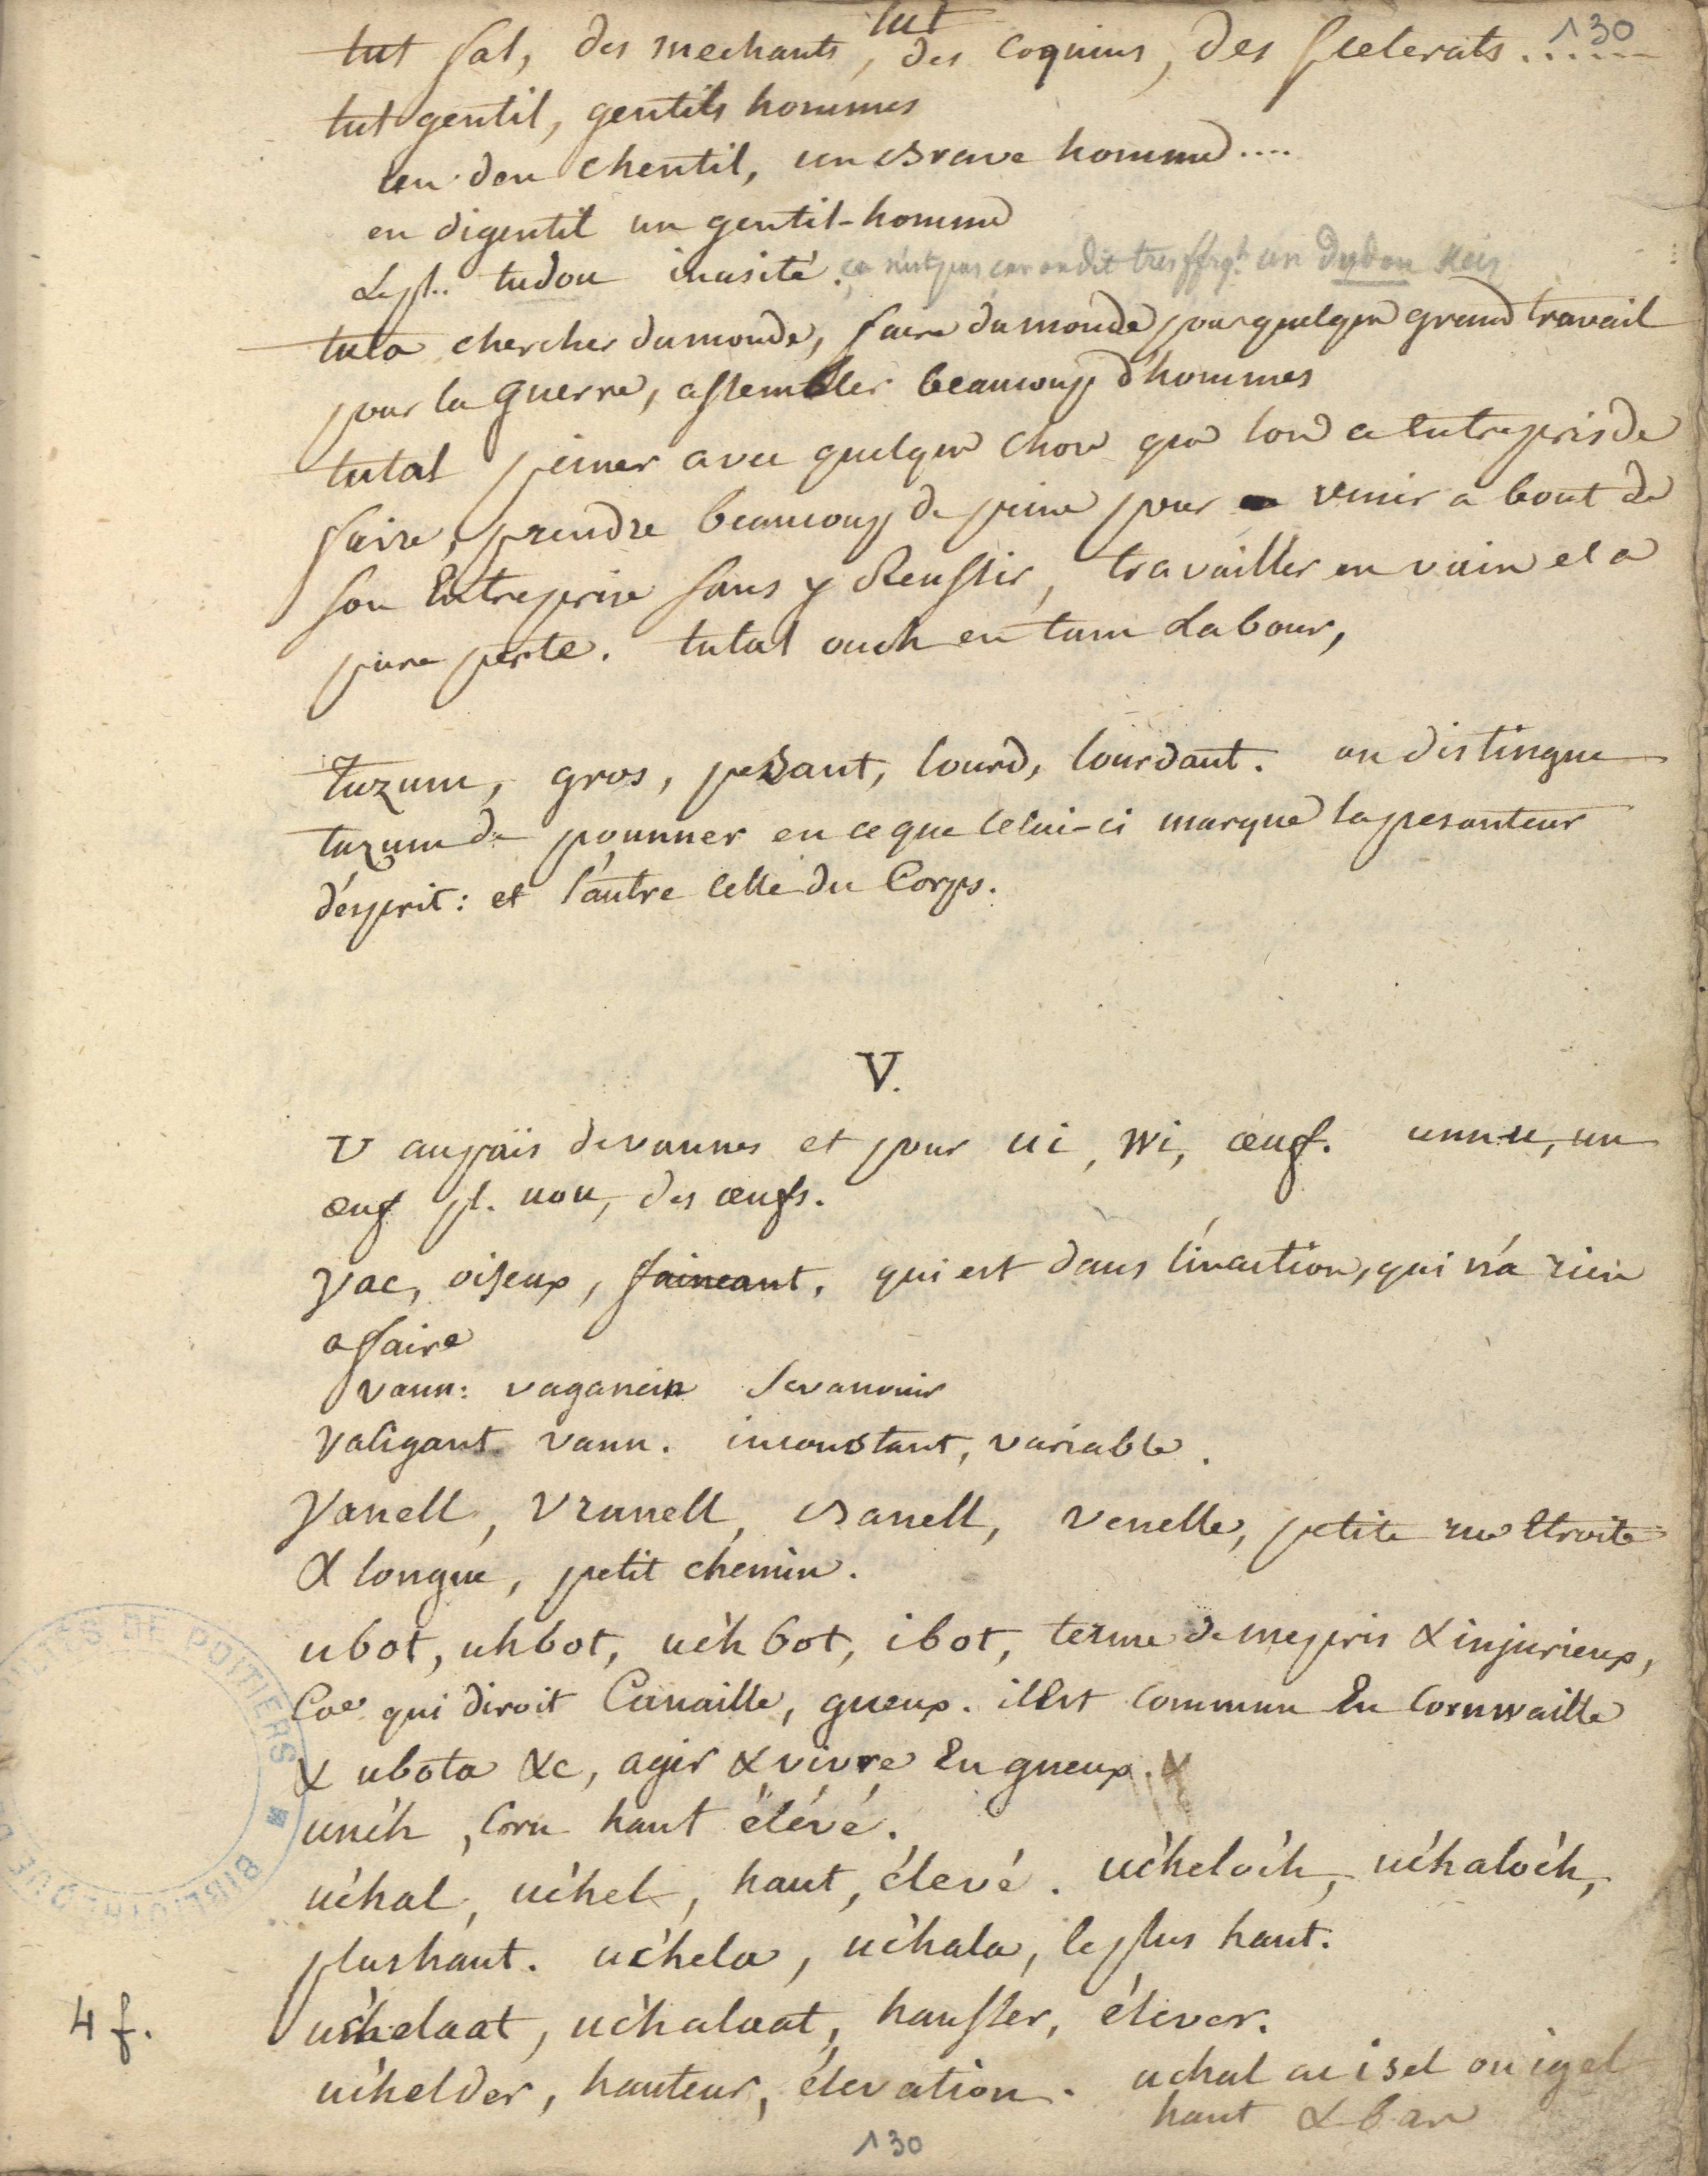 130
tut fal, des mechants, tut des coquins, des scelerats......
tut gentil, gentils hommes
un den chentil, un Brave homme....
en digentil un gentil-homme
Le pl. tudou inusité. ça n'est pas car on dit tres un Dudou
tuta chercher du monde, faire du monde pour quelque grand travail
pour la guerre, assembler beaucoup d'hommes
tutal peiner avec quelque chose que lon a Entrepris de
faire, prendre beaucoup de peine pour venir a bout de
son Entreprise sans y Reussir, travailler en vain et a
pure perte. tutal ouch en tam Labour,
Tuzum, gros, pesant, lourd, lourdaut. on distingue
tuzum de pounner en ce que Celui-ci marque la pesanteur
d'esprit: et l'autre Celle du Corps.
V.
V au païs de vannes et pour ui, wi, œuf. unn u, un
œuf pl. uou, des œufs.
Vac, oiseux, faineant, qui est dans l'inaction, qui n'a rien
a faire
vann: vaganein s'evanouir
Valigant vann. inconstant, variable.
Vanell, Vranell, Banell, venelle, petite rue Etroite
& longue, petit chemin.
ubot, uhbot, uc'hbot, ibot, terme de mepris & injurieux,
Coe qui diroit Canaille, gueux. il Est Commun En Cornwaille
& ubota &c, agir & vivre En gueux. &
unec'h, Corn haut élévé.
uc'hal, uc'hel, haut, élevé. uc'heloc'h, uc'haloc'h,
plus haut. uc'hela, uc'hala, le plus haut.
uc'helaat, uc'halaat, hausser, élever.
uc'helder, hauteur, élevation. uchal ac isel ou igel
haut & bas
4 f.
130
BIBLIOTHEQUE DE POITIERS